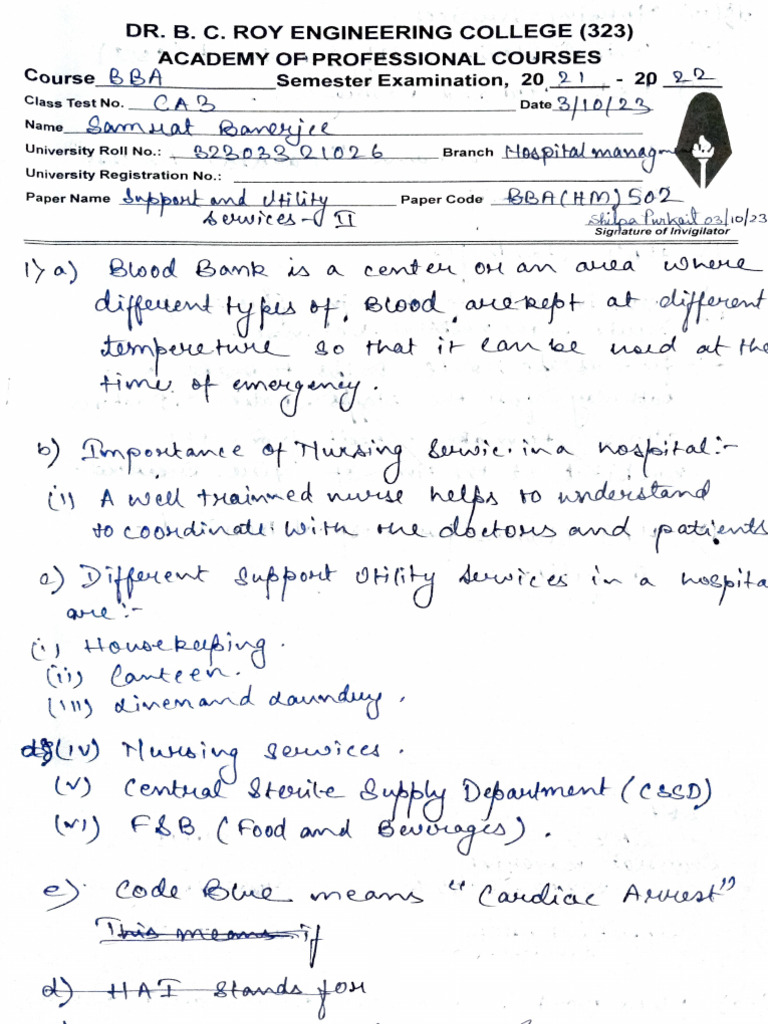 DR. B. C. ROY ENGINEERING COLLEGE (323)
ACADEMY OF PROFESSIONAL COURSES
Course BBA Semester Examination, 2021 - 2022
Class Test No. CA3 Date 3/10/23
Name Samrat Banerjee
University Roll No.: 32303321026 Branch Hospital managm
University Registration No.:
Paper Name Support and Utility Services - II Paper Code BBA(HM)502
Shilpa Purkait 03/10/23
Signature of Invigilator
1) a) Blood Bank is a center or an area where
different types of Blood are kept at different
tempereture so that it can be used at the
time of emergency.
b) Importance of Nursing Servic. in a hospital:-
(i) A well trainned nurse helps to understand
to coordinate with the doctors and patients
c) Different Support Utility Services in a hospita
are:-
(i) Housekeeping.
(ii) Canteen.
(iii) Linen and Laundry.
(iv) Nursing Services.
(v) Central Sterile Supply Department (CSSD)
(vi) F&B. (Food and Beverages).
e) Code Blue means "Cardiac Arrest"
This means if
d) HAI Stands for